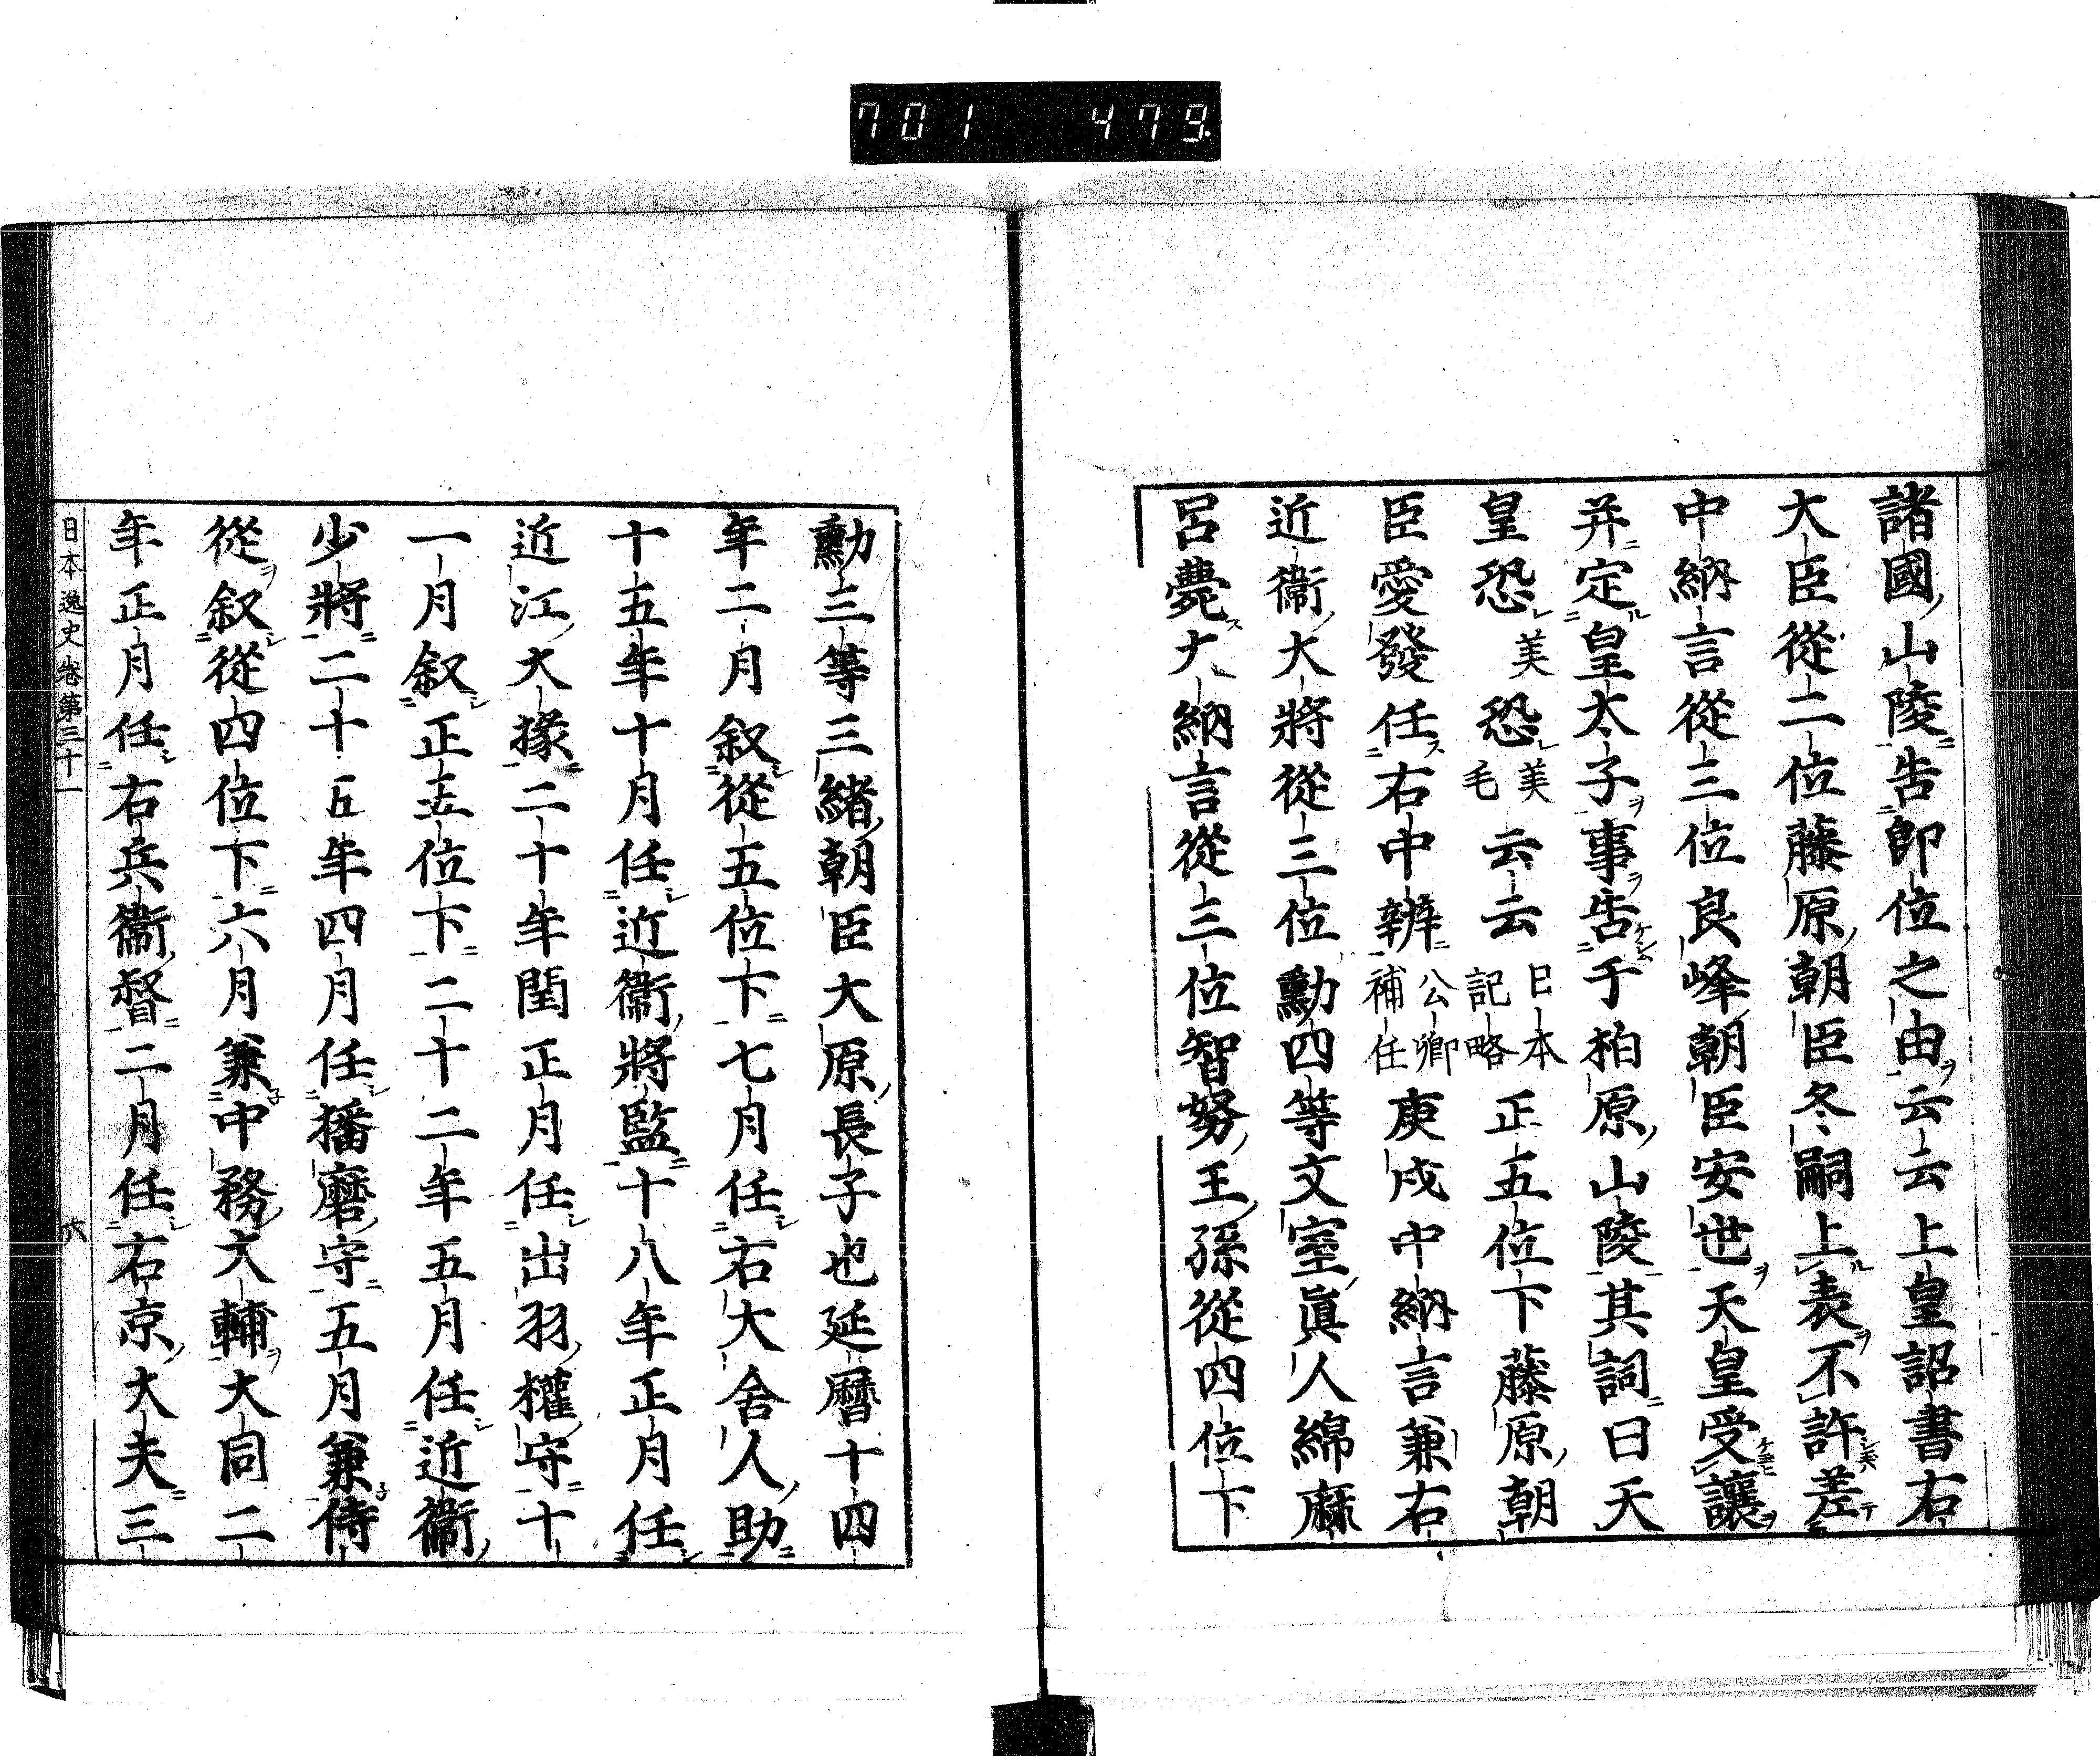 701 479
諸國山陵告卽位之由云云上皇詔書右
大臣從二位藤原朝臣冬嗣上表不許差
中納言從三位良峰朝臣安世天皇受讓
幷定皇太子事告于柏原山陵其詞曰天
皇恐美恐美毛云云日本記略正五位下藤原朝
臣愛發任右中辨公卿補任庚戌中納言兼右
近衞大將從三位勳四等文室眞人綿麻
呂薨大納言從三位智努王孫從四位下
勳三等三緖朝臣大原長子也延曆十四
年二月叙從五位下七月任右大舍人助
十五年十月任近衞將監十八年正月任
近江大掾二十年閏正月任出羽權守十
一月叙正五位下二十二年五月任近衞
少將二十五年四月任播磨守五月兼侍
從叙從四位下六月兼中務大輔大同二
年正月任右兵衞督二月任右京大夫三
日本逸史卷第三十一 六